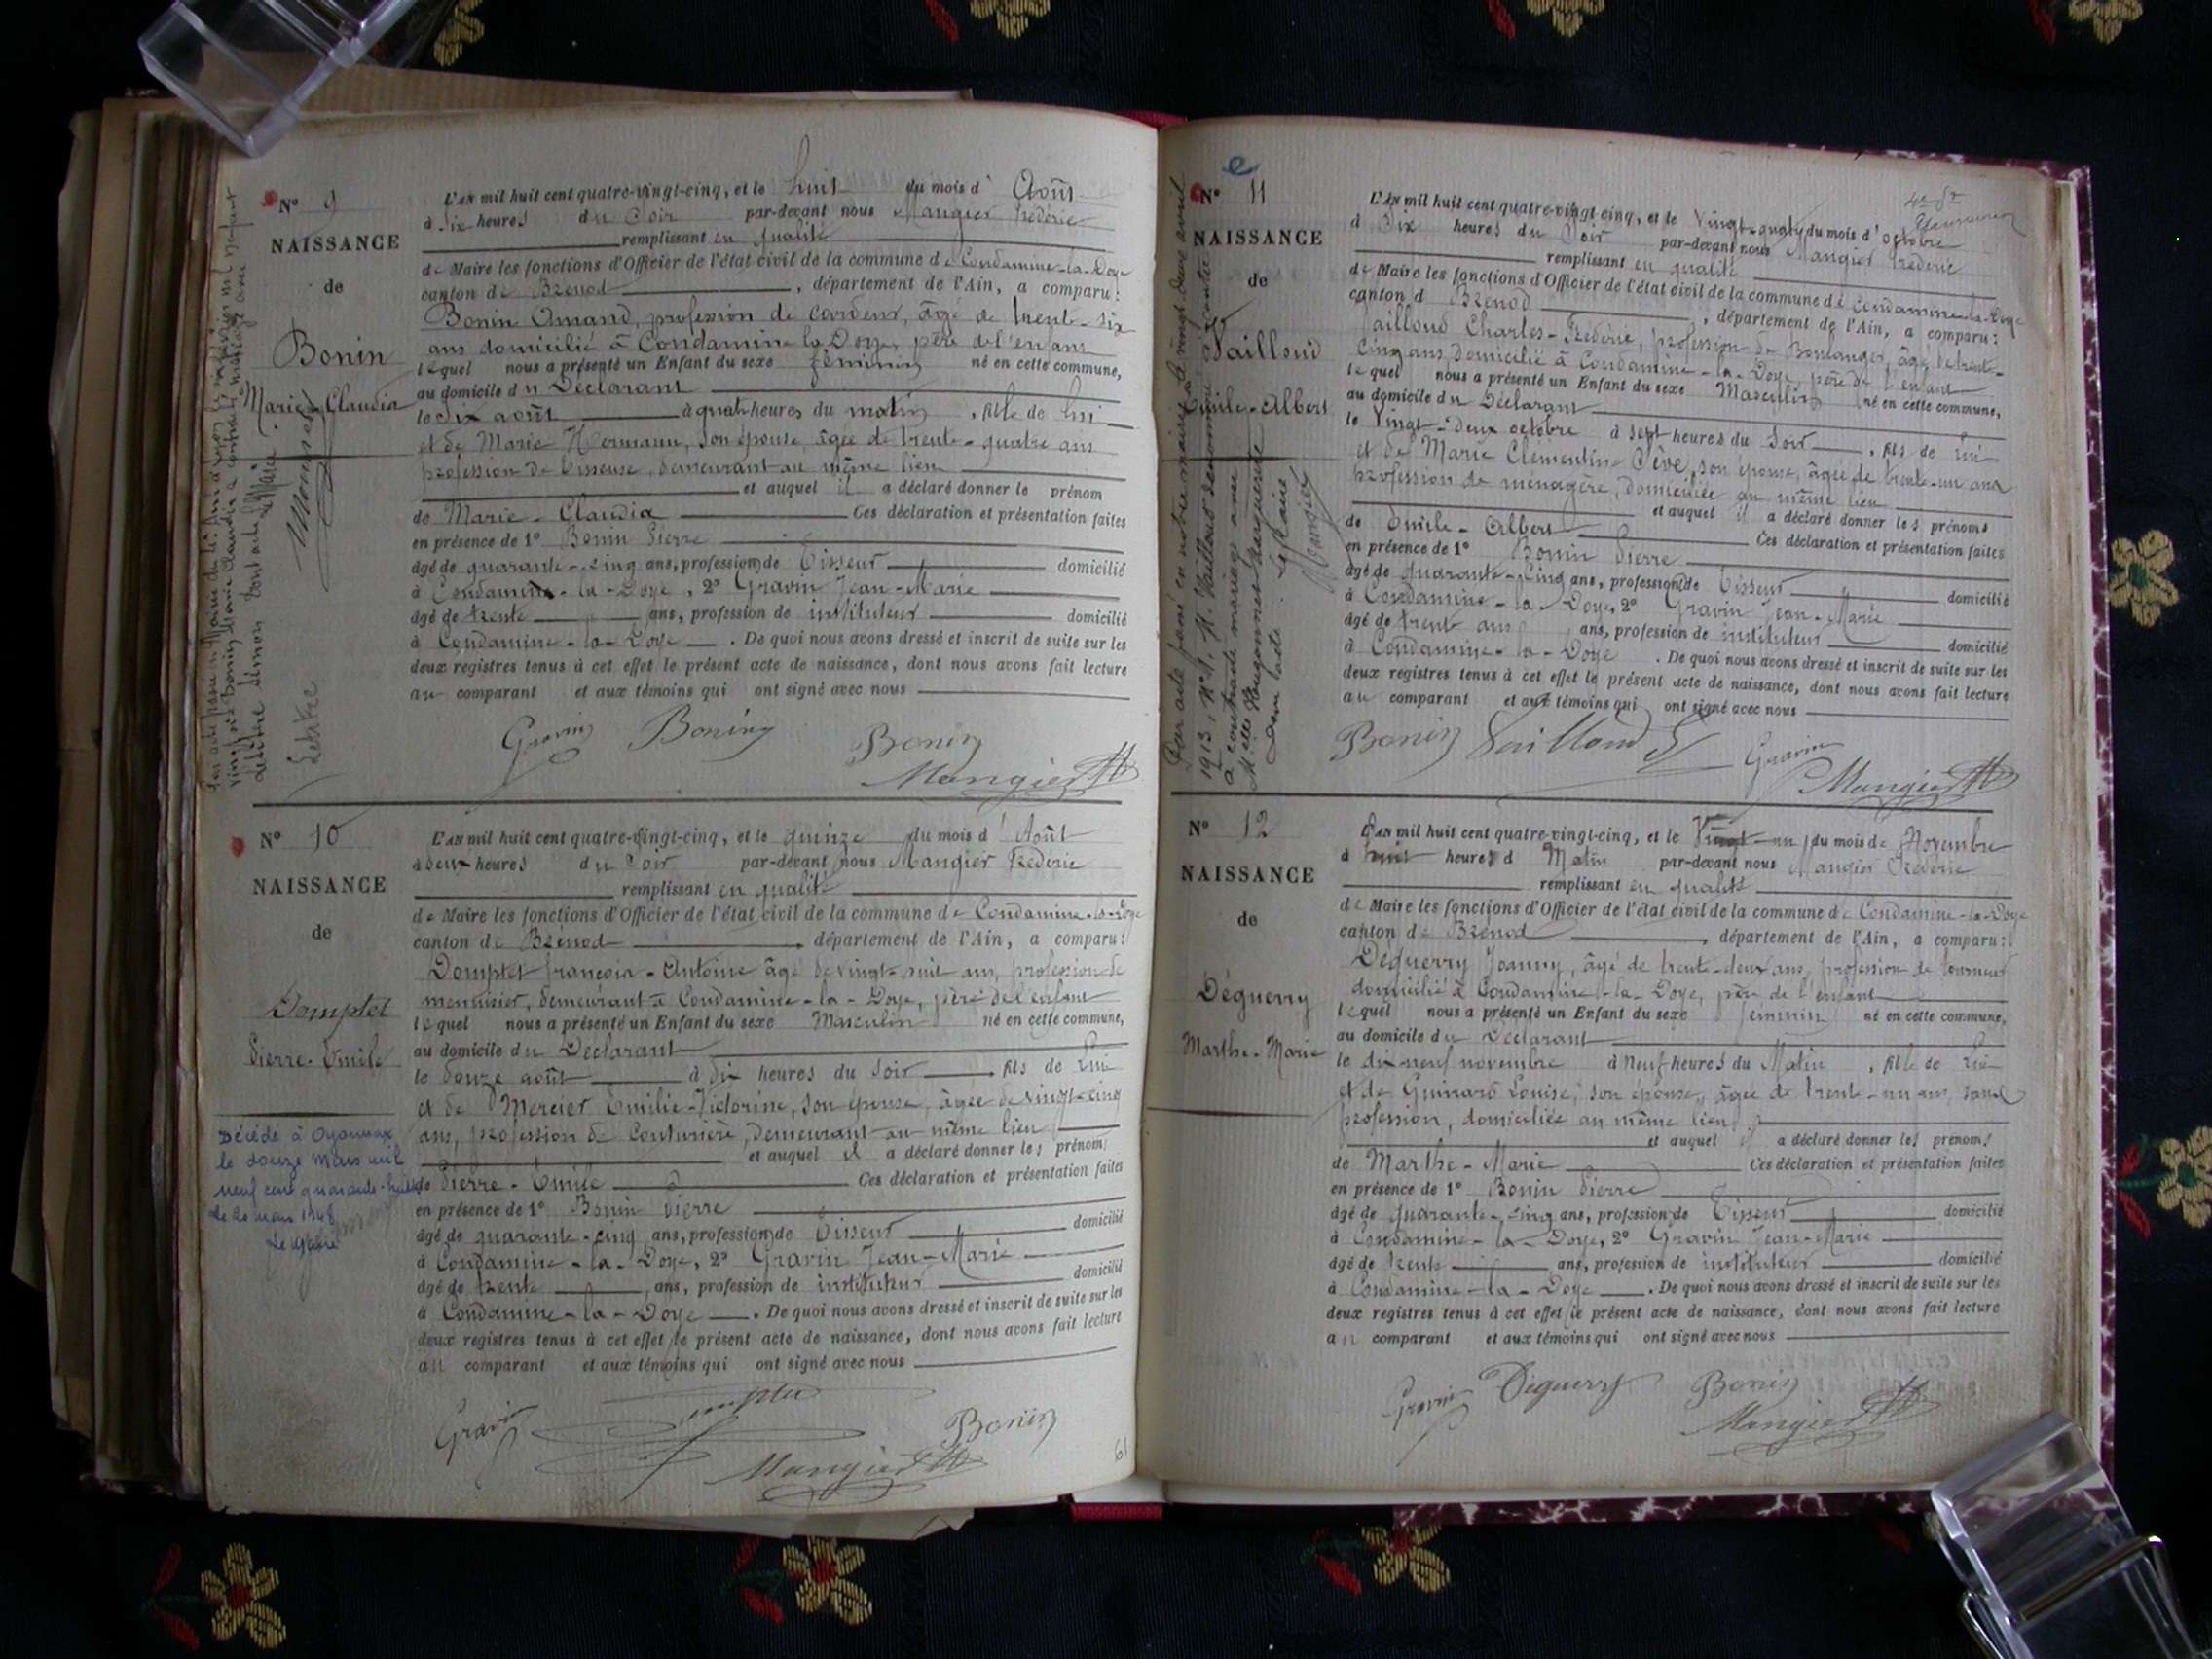 N° 9
NAISSANCE
de
Bonin
Marie-Claudia
L'AN mil huit cent quatre-vingt-cinq, et le huit du mois d' Août
à Six heures du Soir par-devant nous Mangier Frédéric
remplissant en qualité
de Maire les fonctions d'Officier de l'état civil de la commune de Condamine-la-Doye
canton de Brénod, département de l'Ain, a comparu :
Bonin Amand, profession de cardeur, âgé de trente-six
ans domicilié à Condamine la Doye, père de l'enfant
lequel nous a présenté un Enfant du sexe féminin né en cette commune,
au domicile du Déclarant
le Six août à quatre heures du matin, fille de lui
et de Marie Hermann, son épouse, âgée de trente-quatre ans
profession de Tisseuse, demeurant au même lieu
et auquel il a déclaré donner le prénom
de Marie-Claudia Ces déclaration et présentation faites
en présence de 1° Bonin Pierre
âgé de quarante-cinq ans, profession de Tisseur domicilié
à Condamine-la-Doye, 2° Gravin Jean-Marie
âgé de trente ans, profession de instituteur domicilié
à Condamine-la-Doye. De quoi nous avons dressé et inscrit de suite sur les
deux registres tenus à cet effet le présent acte de naissance, dont nous avons fait lecture
au comparant et aux témoins qui ont signé avec nous
Gravin Bonin Bonin
Mangier
N° 10
NAISSANCE
de
Domptet
Pierre-Emile
Décédé à Oyonnax
le douze Mars mil
neuf cent quarante-huit
Le 20 mars 1948
Le Maire
L'AN mil huit cent quatre-vingt-cinq, et le quinze du mois d' Août
à deux heures du Soir par-devant nous Mangier Frédéric
remplissant en qualité
de Maire les fonctions d'Officier de l'état civil de la commune de Condamine-la-Doye
canton de Brénod, département de l'Ain, a comparu :
Domptet françois-Antoine âgé de vingt-huit ans, profession de
menuisier, demeurant à Condamine-la-Doye, père de l'enfant
lequel nous a présenté un Enfant du sexe Masculin né en cette commune,
au domicile du Déclarant
le douze août à dix heures du soir, fils de Lui
et de Mercier Emilie-Victorine, son épouse, âgée de vingt-cinq
ans, profession de Couturière, demeurant au même lieu
et auquel il a déclaré donner les prénoms
de Pierre-Emile Ces déclaration et présentation faites
en présence de 1° Bonin Pierre
âgé de quarante-cinq ans, profession de Tisseur domicilié
à Condamine-la-Doye, 2° Gravin Jean-Marie
âgé de trente ans, profession de instituteur domicilié
à Condamine-la-Doye. De quoi nous avons dressé et inscrit de suite sur les
deux registres tenus à cet effet le présent acte de naissance, dont nous avons fait lecture
au comparant et aux témoins qui ont signé avec nous
Gravin Bonin
Mangier
61
N° 11
NAISSANCE
de
Vailloud
Emile-Albert
L'AN mil huit cent quatre-vingt-cinq, et le Vingt-quatre du mois d' octobre
à Six heures du Soir par-devant nous Mangier Frédéric
remplissant en qualité
de Maire les fonctions d'Officier de l'état civil de la commune de Condamine-la-Doye
canton d Brénod, département de l'Ain, a comparu :
Vailloud Charles-Frédéric, profession de Boulanger, âgé de trente-
cinq ans, domicilié à Condamine-la-Doye, père de l'enfant
lequel nous a présenté un Enfant du sexe Masculin né en cette commune,
au domicile du Déclarant
le Vingt-deux octobre à sept heures du Soir, fils de Lui
et de Marie Clémentine Sève, son épouse, âgée de trente-un ans
profession de ménagère, domiciliée au même lieu
et auquel il a déclaré donner les prénoms
de Emile-Albert Ces déclaration et présentation faites
en présence de 1° Bonin Pierre
âgé de quarante-Cinq ans, profession de Tisseur domicilié
à Condamine-la-Doye, 2° Gravin Jean-Marie
âgé de trente ans ans, profession de instituteur domicilié
à Condamine-la-Doye. De quoi nous avons dressé et inscrit de suite sur les
deux registres tenus à cet effet le présent acte de naissance, dont nous avons fait lecture
au comparant et aux témoins qui ont signé avec nous
Bonin Vailloud Gravin
Mangier
N° 12
NAISSANCE
de
Déguerry
Marthe-Marie
L'AN mil huit cent quatre-vingt-cinq, et le Vingt-un du mois de Novembre
à huit heures d Matin par-devant nous Mangier Frédéric
remplissant en qualité
de Maire les fonctions d'Officier de l'état civil de la commune de Condamine-la-Doye
canton de Brénod, département de l'Ain, a comparu :
Déguerry Joanny, âgé de trente-deux ans, profession de tourneur
domicilié à Condamine-la-Doye, père de l'enfant
lequel nous a présenté un Enfant du sexe féminin né en cette commune,
au domicile du Déclarant
le dix-neuf novembre à neuf heures du Matin, fille de Lui
et de Guinard Louise, son épouse, âgée de trente-un ans, sans
profession, domiciliée au même lieu
et auquel il a déclaré donner les prénoms
de Marthe-Marie Ces déclaration et présentation faites
en présence de 1° Bonin Pierre
âgé de quarante-cinq ans, profession de Tisseur domicilié
à Condamine-la-Doye, 2° Gravin Jean-Marie
âgé de trente ans, profession de instituteur domicilié
à Condamine-la-Doye. De quoi nous avons dressé et inscrit de suite sur les
deux registres tenus à cet effet le présent acte de naissance, dont nous avons fait lecture
au comparant et aux témoins qui ont signé avec nous
Gravin Déguerry Bonin
Mangier